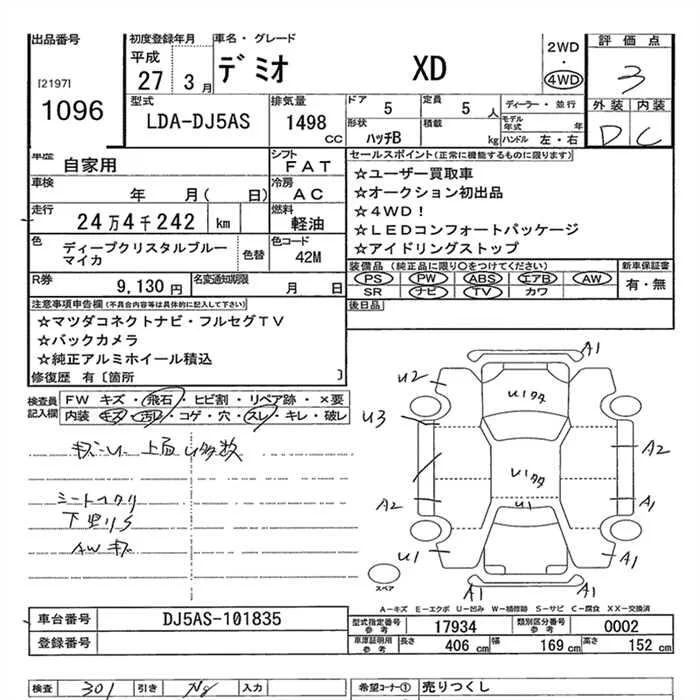 出品番号 初度登録年月 車名・グレード 2WD 評価点
平成 デミオ XD 4WD 3
[2197] 27 3月
1096 型式 排気量 ドア 5 定員 5人 ディーラー・並行 外装 内装
LDA-DJ5AS 1498 CC 形状 ハッチB 積載 kg モデル年式 年 D C
ハンドル 左・右
車歴 自家用 シフト FAT セールスポイント(正常に機能するものに限ります)
車検 年 月( 日) 冷房 AC ☆ユーザー買取車
☆オークション初出品
走行 24万4千242 km 燃料 軽油 ☆4WD!
☆LEDコンフォートパッケージ
色 ディープクリスタルブルーマイカ 色替 色コード 42M ☆アイドリングストップ
装備品(純正品に限り〇をつけてください) 新車保証書
R券 9,130円 名変通知期限 月 日 PS PW ABS エアB AW 有・無
SR ナビ TV カワ
注意事項申告欄(不具合内容等は具体的に記入して下さい) 後日品
☆マツダコネクトナビ・フルセグTV
☆バックカメラ
☆純正アルミホイール積込
修復歴 有〔箇所 〕
検査員記入欄 FW キズ・飛石・ヒビ割・リペア跡・×要
内装・キズ・汚レ・コゲ・穴・スレ・キレ・破レ
上面U多数
下廻りS
AWキズ
A1
U2 U1タタ
U3
A2
U1タタ
A2 A1
U1
U1 A1
スペア A1 A1
A-キズ E-エクボ U-凹み W-補修跡 S-サビ C-腐食 XX-交換済
車台番号 DJ5AS-101835 型式指定番号 参考 17934 類別区分番号 参考 0002
登録番号 車庫証明用 参考 長さ 406 cm 幅 169 cm 高さ 152 cm
検査 301 引き Ng 入力 希望コーナー① 売りつくし